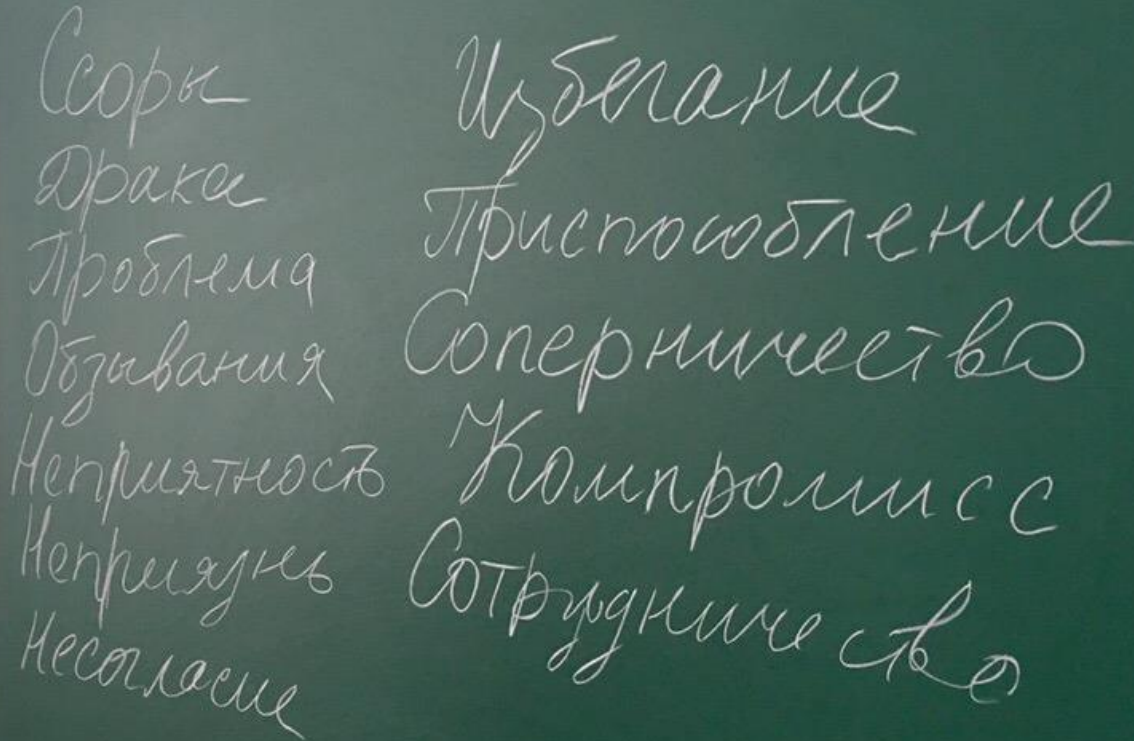 Ссоры
Драка
Проблема
Обзывания
Неприятность
Неприязнь
Несогласие
Избегание
Приспособление
Соперничество
Компромисс
Сотрудничество